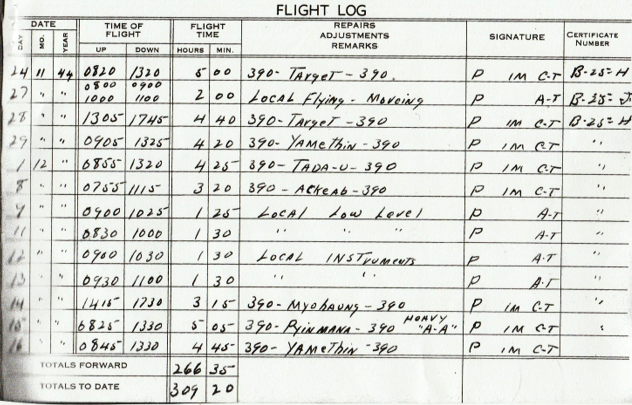 FLIGHT LOG
DATE TIME OF FLIGHT FLIGHT TIME REPAIRS ADJUSTMENTS REMARKS SIGNATURE CERTIFICATE NUMBER
DAY MO. YEAR UP DOWN HOURS MIN.
24 11 44 0820 1320 5 00 390 - TArgeT - 390. P 1M C-T B-25=H
27 " " 0800 0900
1000 1100 2 00 LOCAL FLying - Moveing A-T
28 " " 1305 1745 4 40 390 - TArgeT - 390 P 1M C-T B-25=H
29 " " 0905 1325 4 20 390 - YAMeThin - 390 P 1M C-T "
1 12 " 0855 1320 4 25 390 - TADA-U - 390 P 1M C-T "
8 " " 0755 1115 3 20 390 - ACKeAb - 390 P 1M C-T "
" " 0900 1025 1 25 LOCAL LOW LeveL P A-T "
11 " " 0830 1000 1 30 " " " P A-T "
12 " " 0900 1030 1 30 LOCAL INSTruments P A-T "
13 " " 0930 1100 1 30 " " P A-T "
14 " " 1415 1730 3 15 390 - MyohAung - 390 P 1M C-T "
15 " " 0825 1330 5 05 390 - PyinmanA - 390 HeAVY "A-A" P 1M C-T "
16 " " 0845 1330 4 45 390 - YAMeThin - 390 P 1M C-T
TOTALS FORWARD 266 35
TOTALS TO DATE 309 20